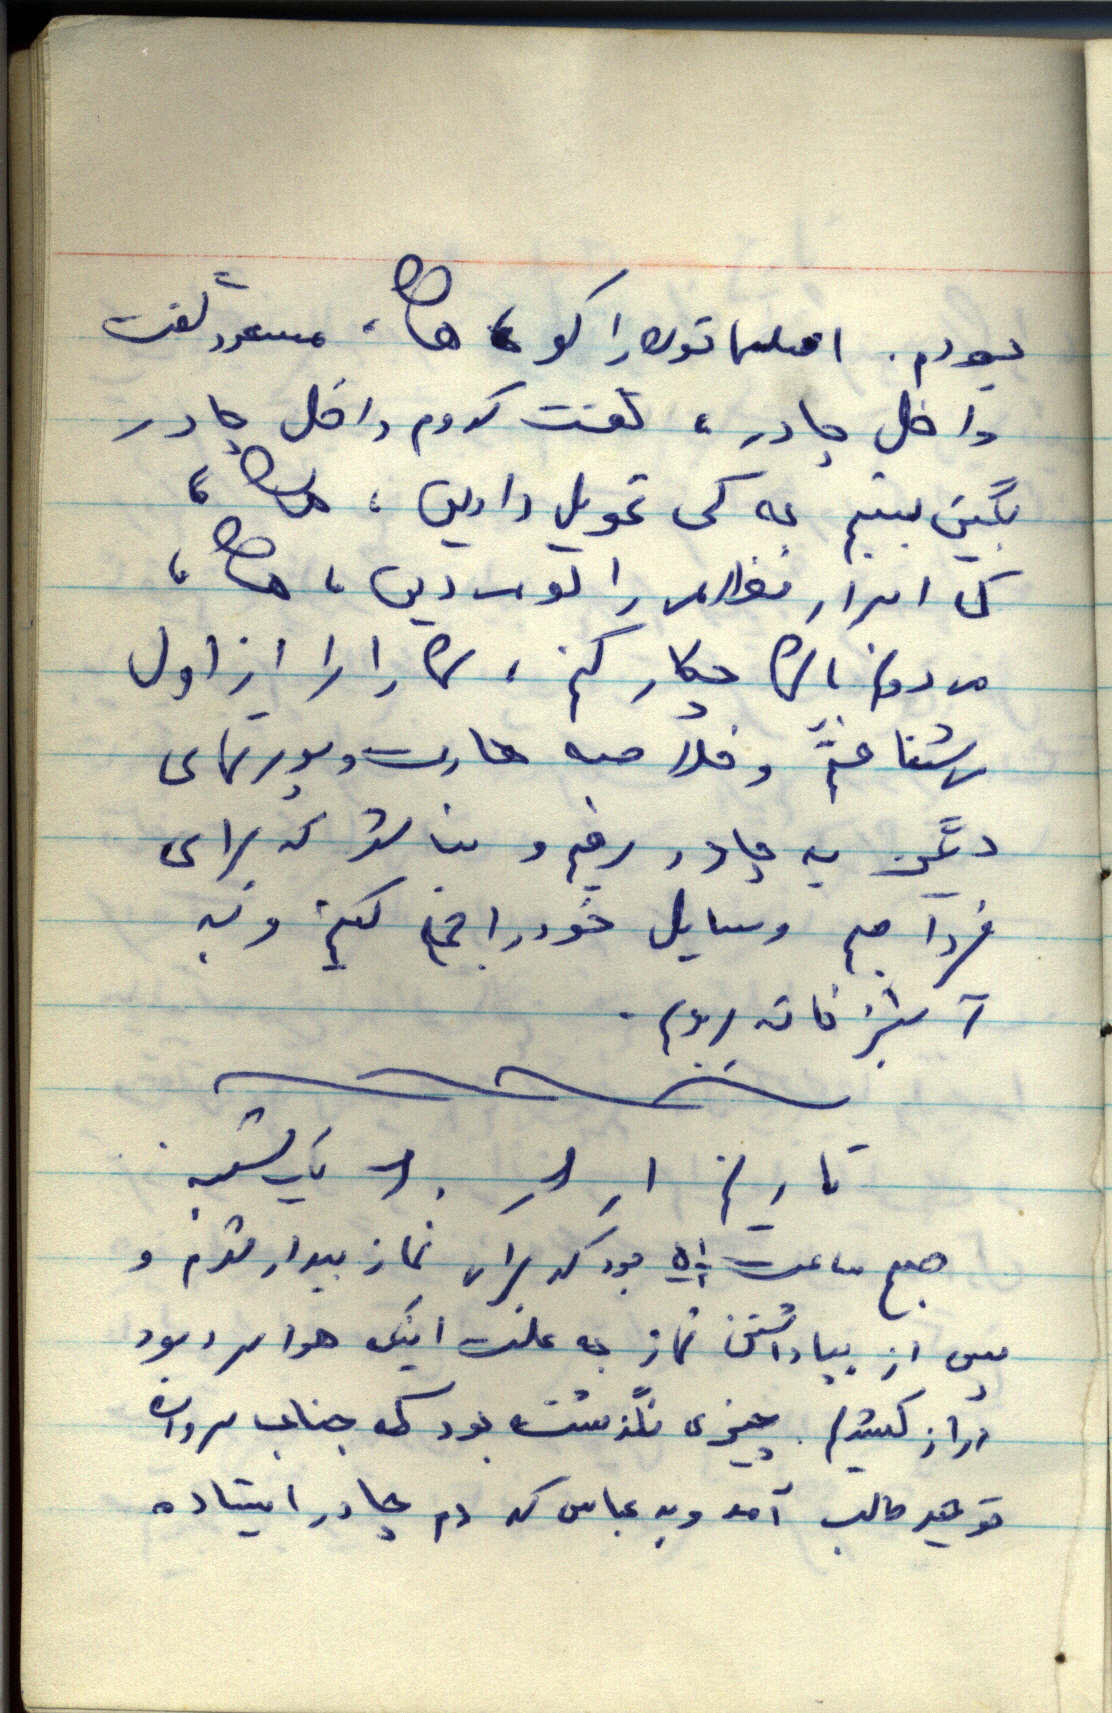 بودم. اسلحه‌تون را کو، هان، مسعود گفت
داخل چادر، گفت کدوم داخل چادر
بگین ببینم به کی تحویل دادین، هان،
کی ابزار را توش دین، هان،
میدونم باهاتون چکار کنم، شما را از اول
شناختم و خلاصه هارت و پورتهای
دیگر. به چادر رفتیم و بنا شد که برای
فردا صبح وسایل خود را جمع کنیم و به
آشپزخانه برویم.
تاریخ یک‌شنبه
صبح ساعت ۵ بود که برای نماز بیدار شدم و
پس از بپا داشتن نماز به علت اینکه هوا سرد بود
دراز کشیدم. چیزی نگذشته بود که جناب سروان
توحید طالب آمد و به عباس که دم چادر ایستاده